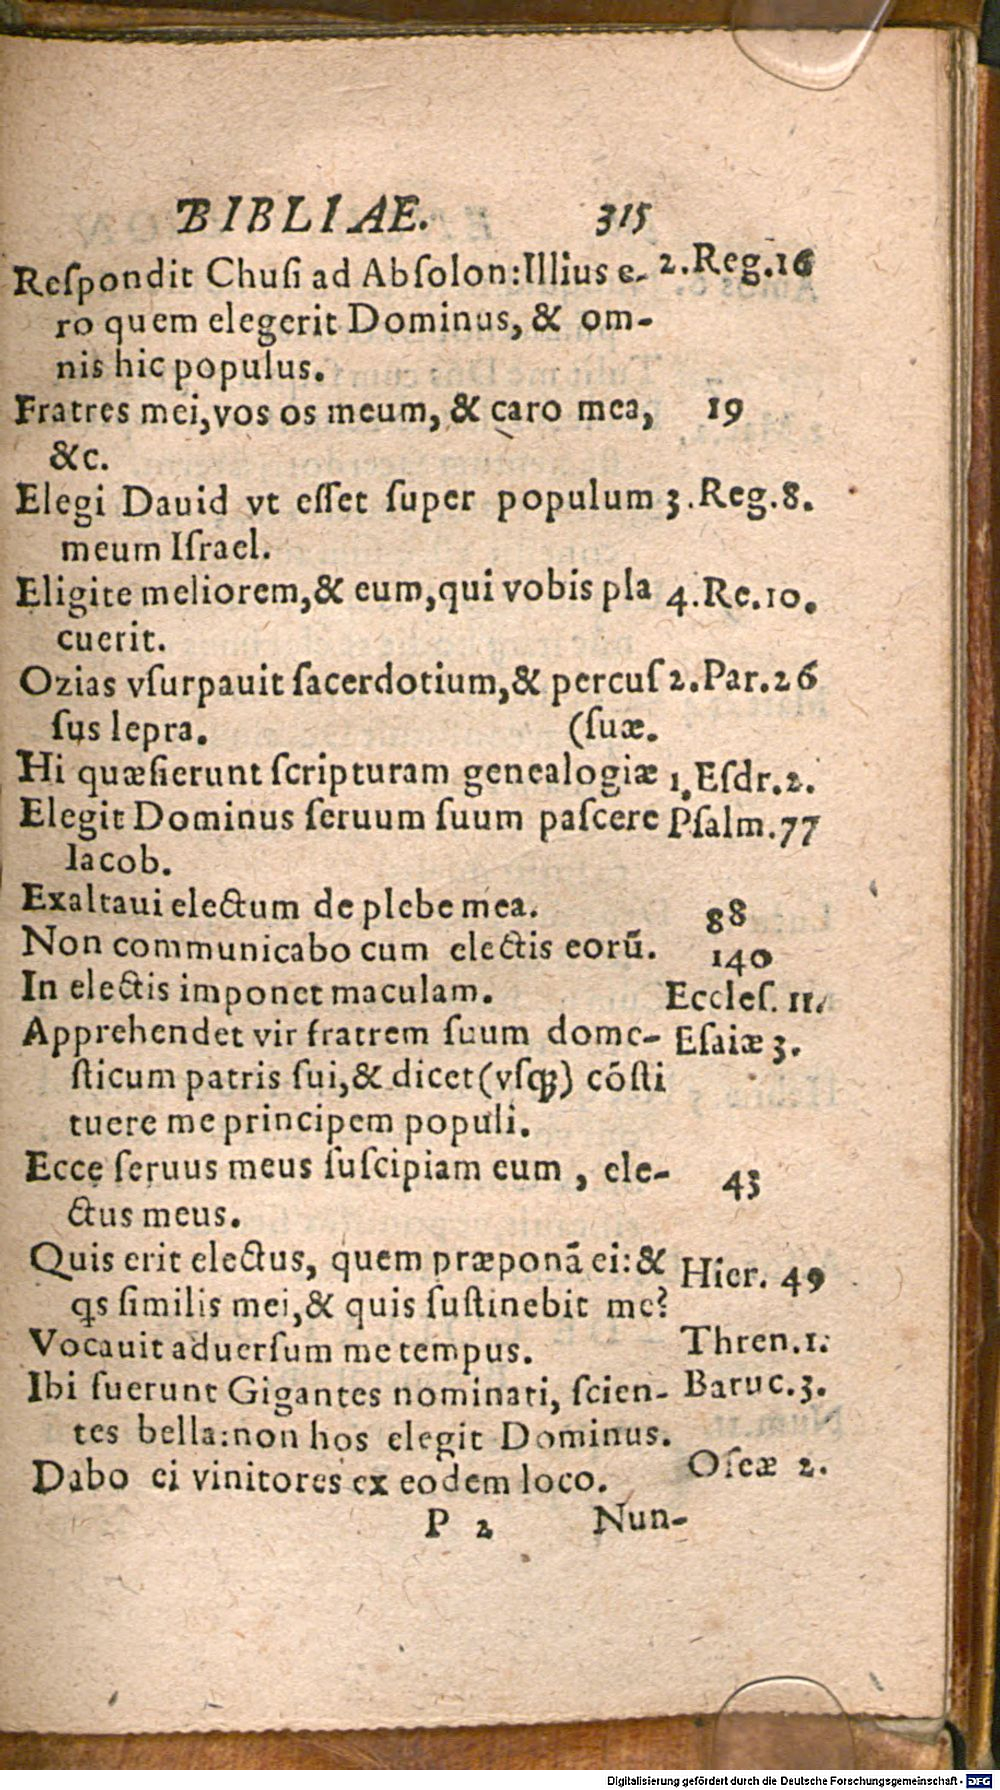 BIBLIAE. 315
Reſpondit Chuſi ad Abſolon:Illius e- 2.Reg.16
ro quem elegerit Dominus, & om-
nis hic populus.
Fratres mei,vos os meum, & caro mea, 19
&c.
Elegi Dauid vt eſſet ſuper populum 3.Reg.8.
meum Iſrael.
Eligite meliorem,& eum,qui vobis pla 4.Re.10.
cuerit.
Ozias vſurpauit ſacerdotium,& percuſ 2.Par.26
ſus lepra. (ſuæ.
Hi quæſierunt ſcripturam genealogiæ 1.Eſdr.2.
Elegit Dominus ſeruum ſuum paſcere Pſalm.77
Iacob.
Exaltaui electum de plebe mea. 88
Non communicabo cum electis eorū. 140
In electis imponet maculam. Eccleſ. 11.
Apprehendet vir fratrem ſuum dome- Eſaiæ 3.
ſticum patris ſui,& dicet(vſq;) cōſti
tuere me principem populi.
Ecce ſeruus meus ſuſcipiam eum , ele- 43
ctus meus.
Quis erit electus, quem præponā ei:& Hier. 49
qs ſimilis mei,& quis ſuſtinebit me?
Vocauit aduerſum me tempus. Thren.1.
Ibi fuerunt Gigantes nominati, ſcien- Baruc.3.
tes bella:non hos elegit Dominus.
Dabo ei vinitores ex eodem loco. Oſeæ 2.
P 2 Nun-
Digitalisierung gefördert durch die Deutsche Forschungsgemeinschaft - DFG